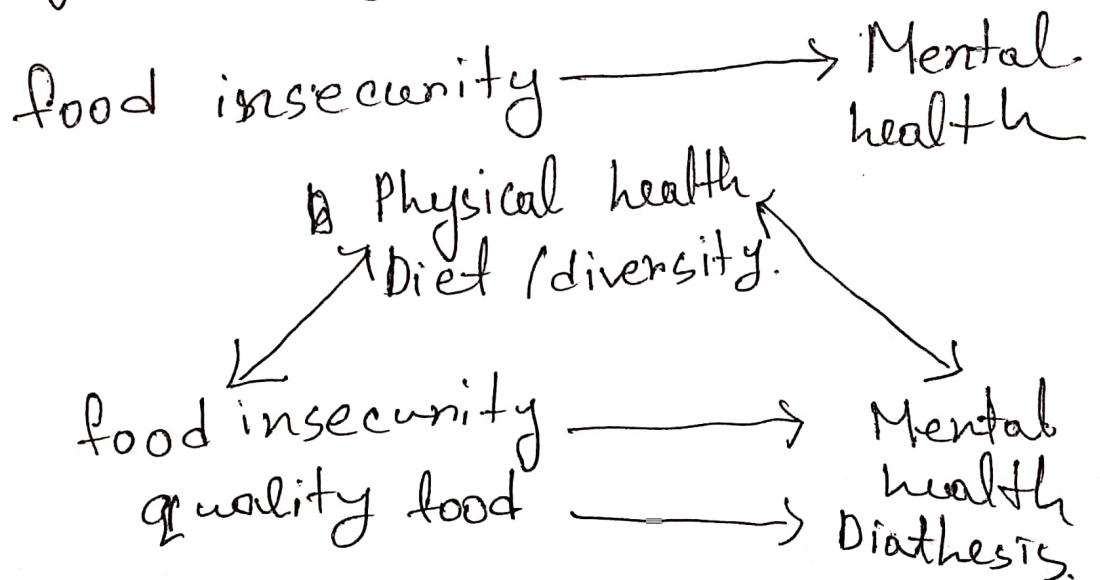 food insecurity → Mental
health
Physical health
Diet /diversity.
food insecurity → Mental
health
quality food → Diathesis.